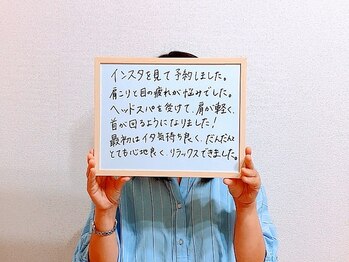 インスタを見て予約しました。
肩こりと目の疲れが悩みでした。
ヘッドスパを受けて、肩が軽く、
首が回るようになりました！
最初はイタ気持ち良く、だんだん
とても心地良く、リラックスできました。